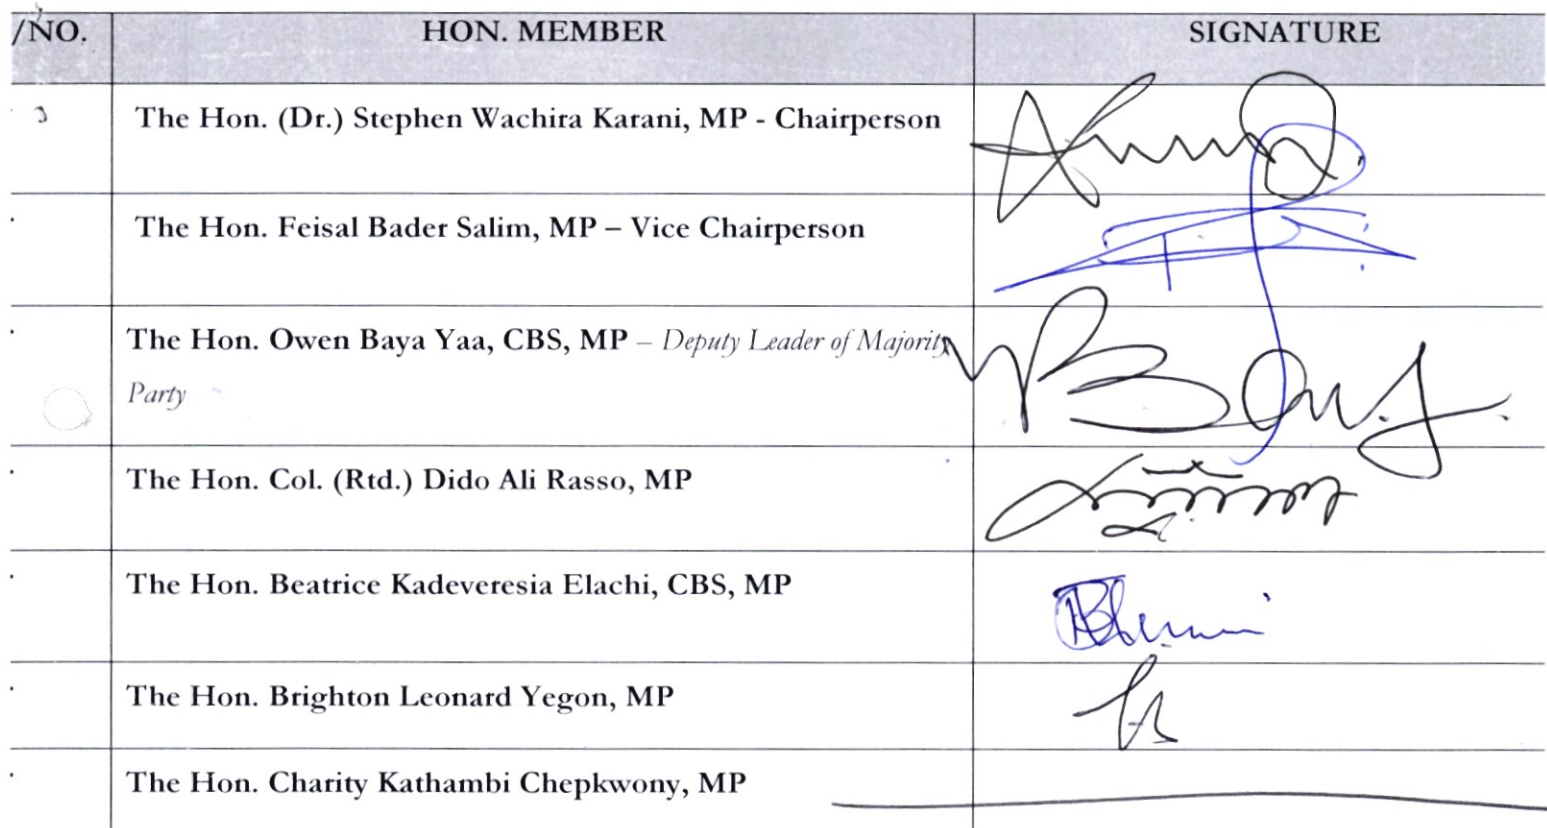 /NO. HON. MEMBER SIGNATURE
The Hon. (Dr.) Stephen Wachira Karani, MP - Chairperson
The Hon. Feisal Bader Salim, MP – Vice Chairperson
The Hon. Owen Baya Yaa, CBS, MP – Deputy Leader of Majority
Party
The Hon. Col. (Rtd.) Dido Ali Rasso, MP
The Hon. Beatrice Kadeveresia Elachi, CBS, MP
The Hon. Brighton Leonard Yegon, MP
The Hon. Charity Kathambi Chepkwony, MP